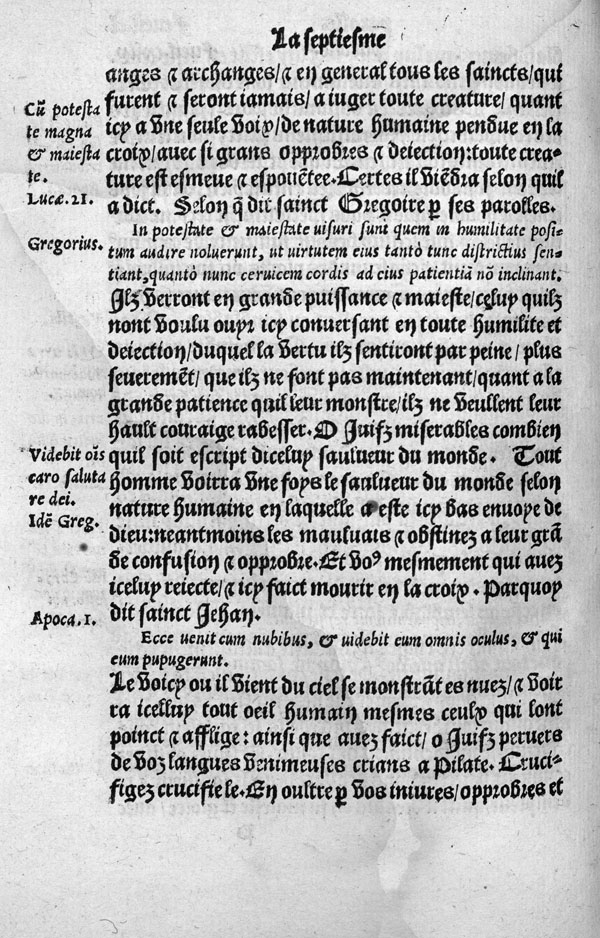 La septiesme
anges ⁊ archanges/⁊ en general tous les saincts/qui
furent ⁊ seront iamais/a iuger toute creature/quant
icy a vne seule voix/de nature humaine pendue en la
croix/auec si grans opprobres ⁊ deiection:toute crea-
ture est esmeue ⁊ espouẽtee.Certes il viẽdra selon quil
a dict. Selon q̃ dit sainct Gregoire ꝑ ses parolles.
In potestate & maiestate uisuri sunt quem in humilitate posi-
tum audire noluerunt, ut uirtutem eius tantò tunc districtius sen-
tiant,quantò nunc ceruicem cordis ad eius patientiã nõ inclinant.
Ilz verront en grande puissance ⁊ maieste/celuy quilz
nont voulu ouyr icy conuersant en toute humilite et
deiection/duquel la vertu ilz sentiront par peine/ plus
seueremẽt/ que ilz ne font pas maintenant/quant a la
grande patience quil leur monstre/ilz ne veullent leur
hault couraige rabesser. O Juifz miserables combien
quil soit escript diceluy saulueur du monde. Tout
homme voirra vne foys le saulueur du monde selon
nature humaine en laquelle a este icy bas enuoye de
dieu:neantmoins les mauluais ⁊ obstinez a leur grã
de confusion ⁊ opprobre. Et voꝰ mesmement qui auez
iceluy reiecte/⁊ icy faict mourir en la croix. Parquoy
dit sainct Jehan.
Ecce uenit cum nubibus, & uidebit eum omnis oculus, & qui
eum pupugerunt.
Le voicy ou il vient du ciel se monstrãt es nuez/⁊ voir
ra icelluy tout oeil humain mesmes ceulx qui lont
poinct ⁊ afflige: ainsi que auez faict/o Juifz peruers
de voz langues venimeuses crians a Pilate. Cruci-
figez crucifie le. En oultre ꝑ vos iniures/opprobres et
Cũ potesta
te magna
& maiesta
te.
Lucæ.21.
Gregorius.
Videbit oĩs
caro saluta
re dei.
Idẽ Greg.
Apoca.1.